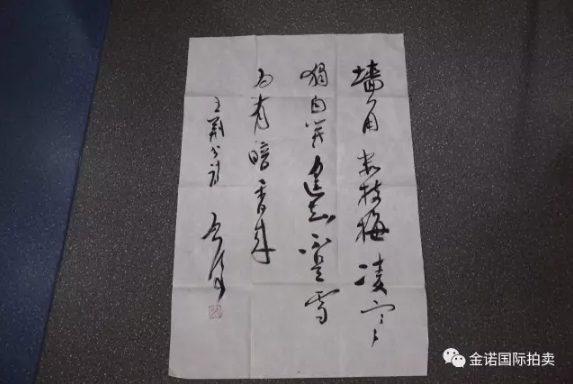 墙角数枝梅凌寒
独自开遥知不是雪
为有暗香来
王荆公诗
金诺国际拍卖